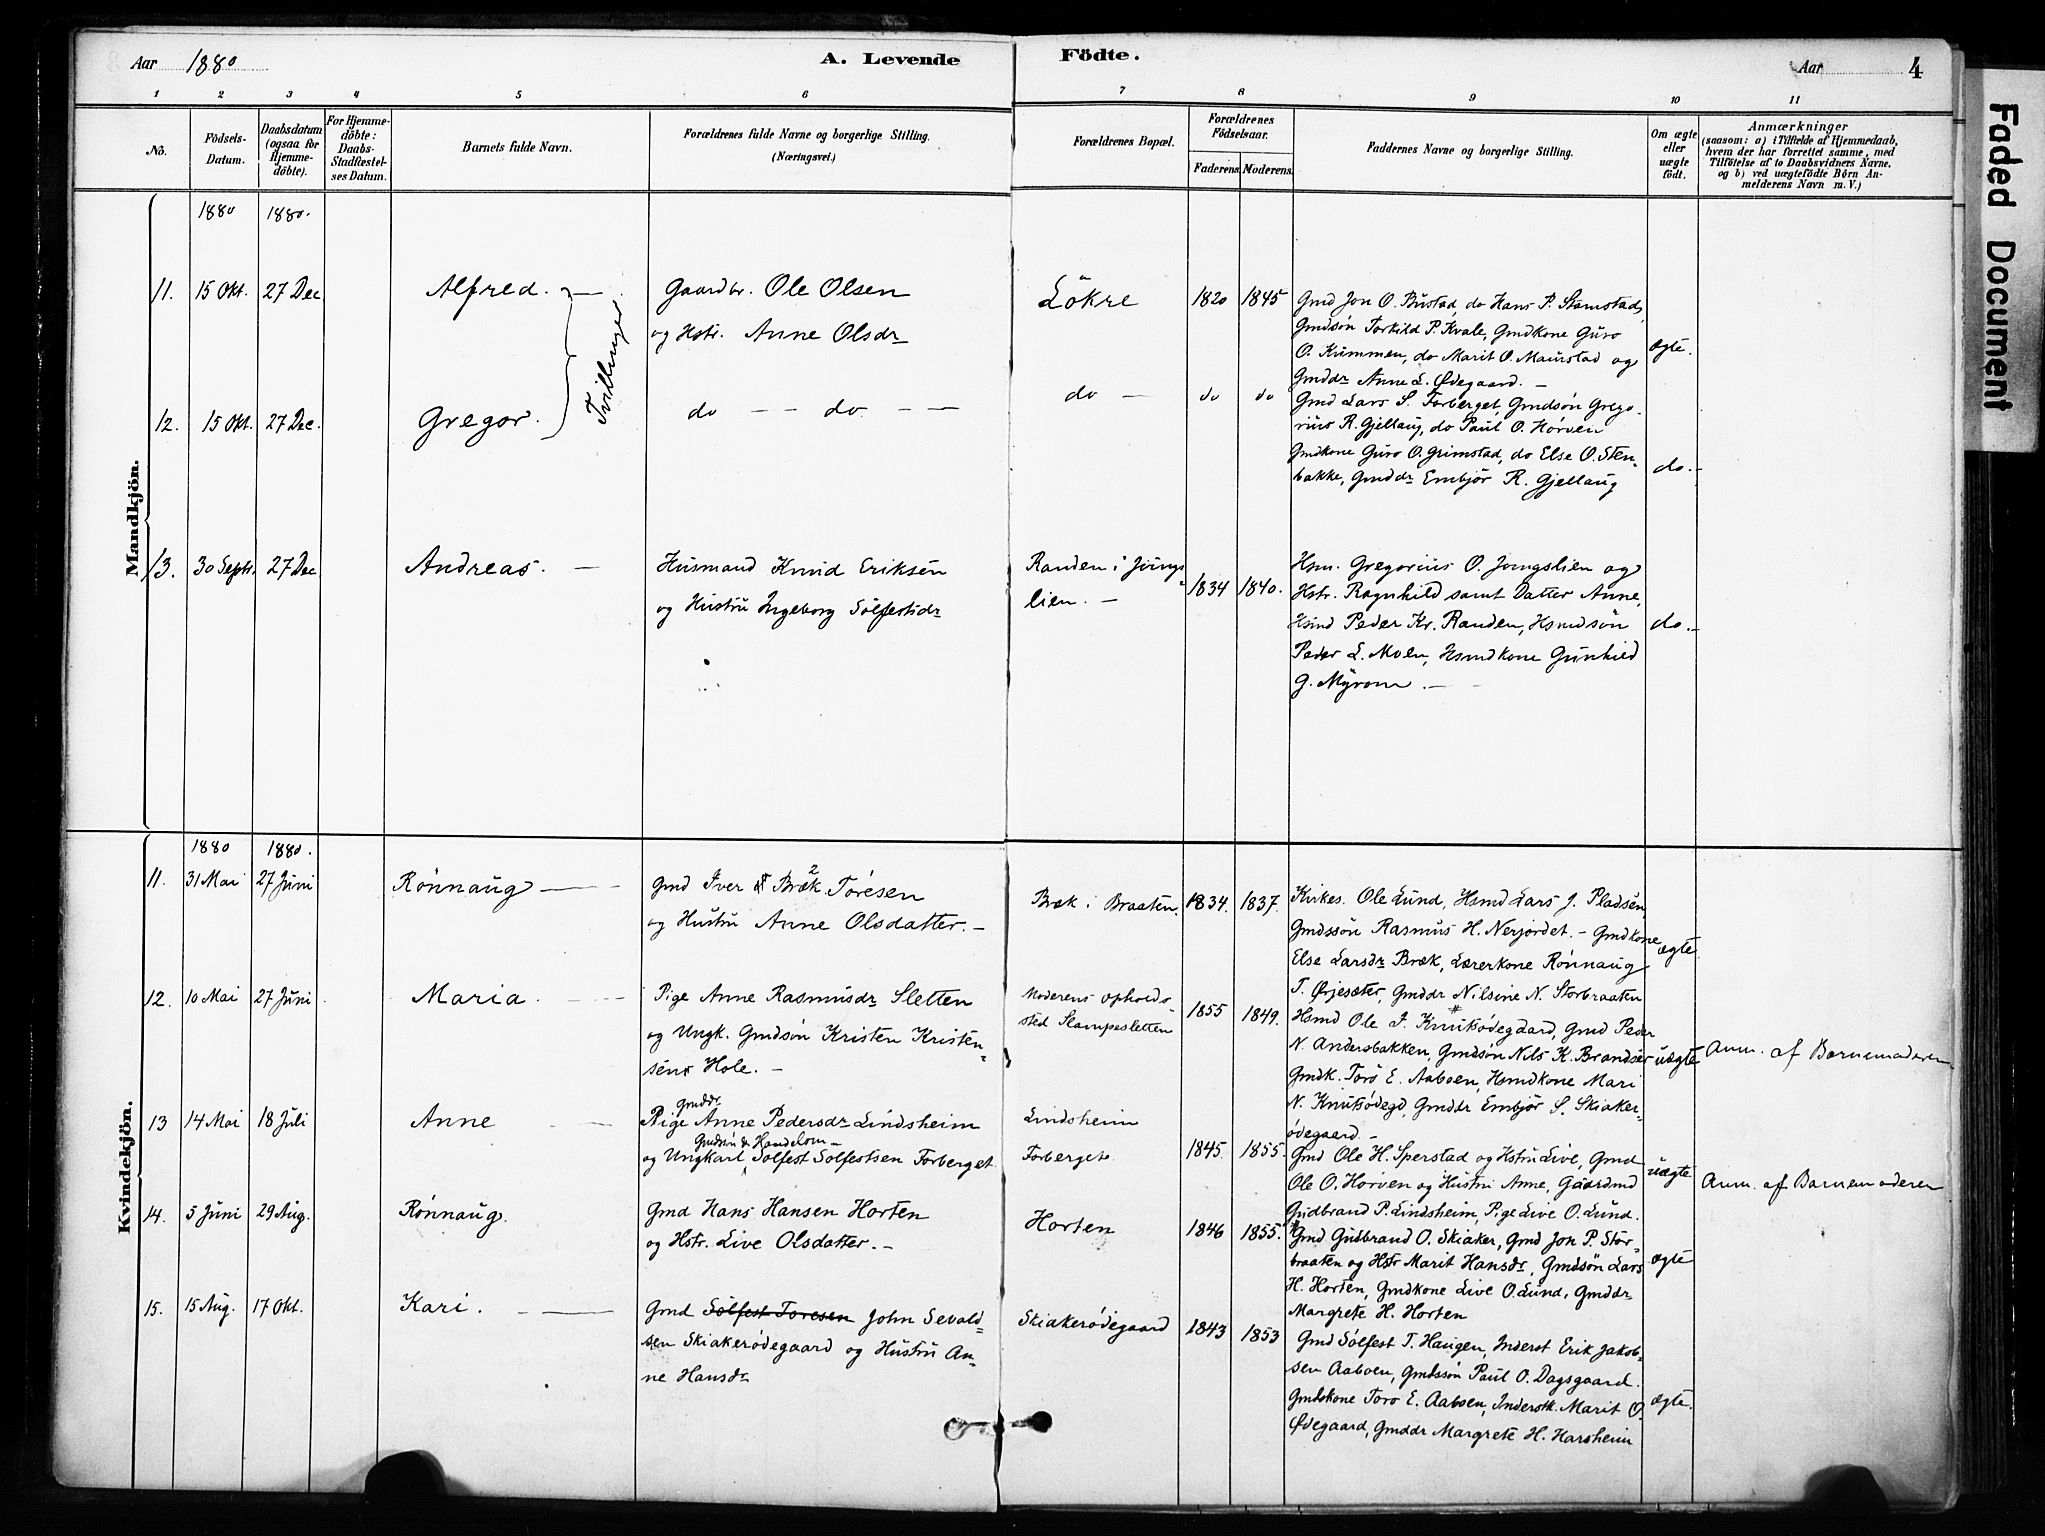 Aar 1880 A. Levende Födte. Aar 4
1 2 3 4 5 6 7 8 9 10 11
No. Födsels-Datum. Daabsdatum (ogsaa for Hjemme-döbte). For Hjemme-döbte: Daabs-Stadfæstel-ses Datum. Barnets fulde Navn. Forældrenes fulde Navne og borgerlige Stilling. (Næringsvei.) Forældrenes Bopæl. Forældrenes Födselsaar. Faderens. Moderens. Faddernes Navne og borgerlige Stilling. Om ægte eller uægte födt. Anmærkninger (saasom: a) i Tilfælde af Hjemmedaab, hvem der har forrettet samme, med Tilföielse af to Daabsvidners Navne, og b) ved uægtefödte Börn An-melderens Navn m. V.)
Faded Document
Mandkjön.
1880 1880.
11. 15 Okt. 27 Dec Alfred. — Tvillinger
Gaardbr. Ole Olsen
og Hstr. Anne Olsdr
Lökre 1820 1845
Gmd Jon O. Bustad, do Hans P. Stamstad,
Gmdsön Torkild P. Kvale, Gmdkone Guro
O. Kummen, do Marit O. Maurstad og
Gmddr Anne L. Ødegaard. —
ægte.
12. 15 Okt. 27 Dec. Gregor.
do — — do — —
do — do do
Gmd Lars S. Forberget, Gmdsön Grego-
rius R. Gjellaug, do Paul O. Horven
Gmdkone Guro O. Grimstad, do Else O. Sten-
bakke, Gmddr Embjör R. Gjellaug
do. —
13. 30 Septr. 27 Dec Andreas. —
Husmand Knud Eriksen
og Hustru Ingeborg Sölfestsdr
Randen i Jongs-
lien. — 1834 1840.
Hsm. Gregorius O. Jongslien og
Hstr. Ragnhild samt Datter Anne,
Hsmd Peder Kr. Randen, Hsmdsön
Peder L. Moen, Hsmdkone Gunhild
G. Myrom. —
do. —
Kvindekjön.
1880 1880.
11. 31 Mai 27 Juni Rönnaug —
Gmd Iver Bræk 2 Toresen
og Hustru Anne Olsdatter. —
Bræk i Braaten. 1834. 1837.
Kirkes. Ole Lund, Hsmd Lars J. Pladsen
Gmdssön Rasmus H. Nerjordet. — Gmdkone
Else Larsdr Bræk, Lærerkone Rönnaug
T. Ørjesæter, Gmddr Nilsine N. Storbraaten
ægte
12. 10 Mai 27 Juni Maria. —
Pige Anne Rasmusdr Sletten
og Ungk. Gmdsön Kristen Kristen-
sen Hole. —
Moderens opholds-
sted Slampesletten 1855 1849.
Hsmd Ole J. Knutsödegaard, Gmd Peder
N. Andersbakken, Gmdsön Nils K. Brandsær
Gmdk. Torö E. Aaboen, Hsmdkone Mari
N. Knutsödegd, Gmddr Embjör S. Skiaker-
ödegaard. —
uægte Anm. af Barnemoderen
13 14 Mai 18 Juli Anne —
gmddr
Pige Anne Pedersdr Lindsheim
Gmdsön & Handelsm —
og Ungkarl Solfest Solfestsen Forberget
Lindsheim
Forberget. 1845. 1855.
Gmd Ole H. Sperstad og Hstru Live, Gmd
Ole O. Horven og Hustru Anne, Gaardmd
Gudbrand P. Lindsheim, Pige Live O. Lund.
uægte Anm. af Barnemoderen
14. 5 Juni 29 Aug. Rönnaug.
Gmd Hans Hansen Horten
og Hstr. Live Olsdatter. —
Horten 1846 1855.
Gmd Gudbrand O. Skiaker, Gmd Jon P. Stor-
braaten og Hstr Marit Hansdr, Gmdsön Lars
H. Horten, Gmdkone Live O. Lund, Gmddr
Margrete H. Horten
ægte
15. 15 Aug. 17 Okt. Kari. —
Gmd Sölfest Toresen John Sevald-
sen Skiakerødegaard og Hustru An-
ne Hansdr
Skiakerødegaard 1843 1853
Gmd Sölfest T. Haugen, Inderst Erik Jakob-
sen Aaboen, Gmdssön Paul O. Dagsgaard.
Gmdskone Torö E. Aaboen, Inderstk. Marit O.
Ødegaard, Gmddr Margrete H. Harsheim
ægte.